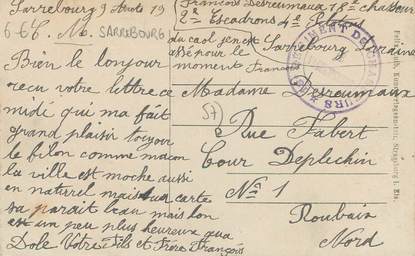 Sarrebourg 9 Août 19
6-6-C. M. SARREBOURG
Bien le bonjour
recu votre lettre ce
midi qui ma fait
grand plaisir toujour
le filon comme macon
la ville est moche aussi
en naturel mais sur carte
sa parait beau mais bon
est un peu plus heureux qua
Dole Votre Fils et Frère François
François Desreumaux 18e chasseur
2me Escadrons 4e Peloton
Sarrebourg Lorraine
pour le
moment François
Madame Desreumaux
57
Rue Fabert
Cour Deplechin
No 1
Roubaix
Nord
REGIMENT DE CHASSEURS
Strassburg i. Els.